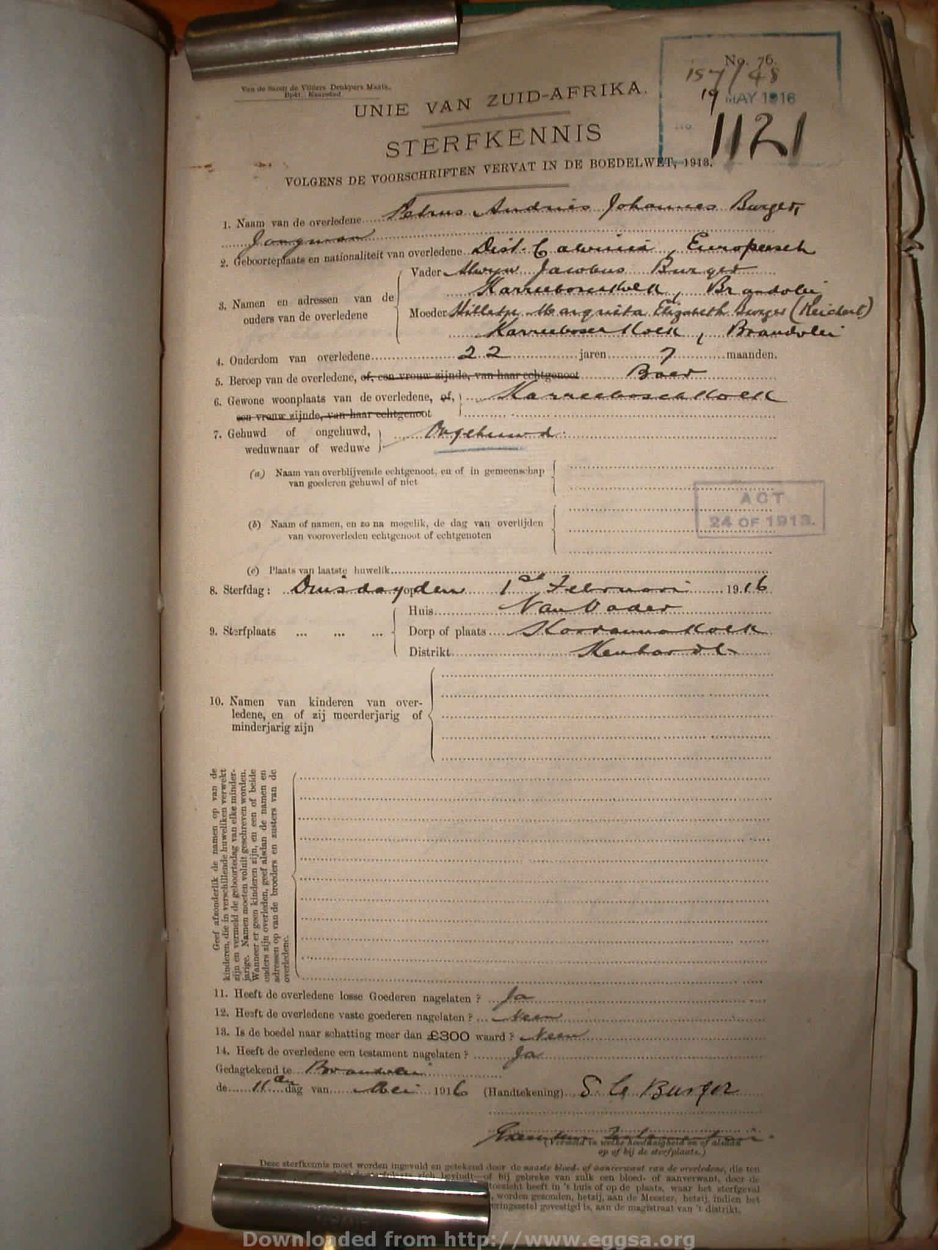 Van de Sandt de Villiers Drukpers Maats.,
Bpkt. Kaapstad
No. 76.
157/48
19 MAY 1916
No.
1121
UNIE VAN ZUID-AFRIKA.
STERFKENNIS
VOLGENS DE VOORSCHRIFTEN VERVAT IN DE BOEDELWET, 1913.
1. Naam van de overledene Petrus Andries Johannes Burger,
Jongman
2. Geboorteplaats en nationaliteit van overledene Dist. Calvinia, Europeesch
3. Namen en adressen van de ouders van de overledene
Vader Jacobus Burger
, Brandvlei
Moeder Margrita Elizabeth Burger
, Brandvlei
4. Ouderdom van overledene 22 jaren 7 maanden.
5. Beroep van de overledene, of, een vrouw zijnde, van haar echtgenoot Boer
6. Gewone woonplaats van de overledene, of,
een vrouw zijnde, van haar echtgenoot
7. Gehuwd of ongehuwd, weduwnaar of weduwe Ongehuwd
(a) Naam van overblijvende echtgenoot, en of in gemeenschap
van goederen gehuwd of niet
ACT
24 OF 1913.
(b) Naam of namen, en zo na mogelik, de dag van overlijden
van vooroverleden echtgenoot of echtgenoten
(c) Plaats van laatste huwelik
8. Sterfdag: Dinsdag op den 1ste Februari 1916
9. Sterfplaats ... ... ...
Huis Van Vader
Dorp of plaats
Distrikt Kenhardt
10. Namen van kinderen van over-
ledene, en of zij meerderjarig of
minderjarig zijn
Geef afzonderlik de namen op van de
kinderen, die in verschillende huweliken verwekt
zijn en vermeld de geboortedag van elke minder-
jarige. Namen moeten voluit geschreven worden.
Wanneer er geen kinderen zijn, en een of beide
ouders zijn overleden, geef alsdan de namen en
adressen op van de broeders en zusters van de
overledene.
11. Heeft de overledene losse Goederen nagelaten? Ja
12. Heeft de overledene vaste goederen nagelaten? Neen
13. Is de boedel naar schatting meer dan £300 waard? Neen
14. Heeft de overledene een testament nagelaten? Ja
Gedagtekend te Brandvlei
de 11den dag van Mei 1916 (Handtekening) Burger
(Vermeld in welke hoedanigheid en of aldaar
op of bij de sterfplaats.)
Deze sterfkennis moet worden ingevuld en getekend door de naaste bloed- of aanverwant van de overledene, die ten
of bij gebreke van zulk een bloed- of aanverwant, door de
toezicht heeft in 't huis of op de plaats, waar het sterfgeval
, worden gezonden, hetzij, aan de Meester, hetzij, indien het
gevestigd is, aan de magistraat van 't distrikt.
Downloaded from http://www.eggsa.org